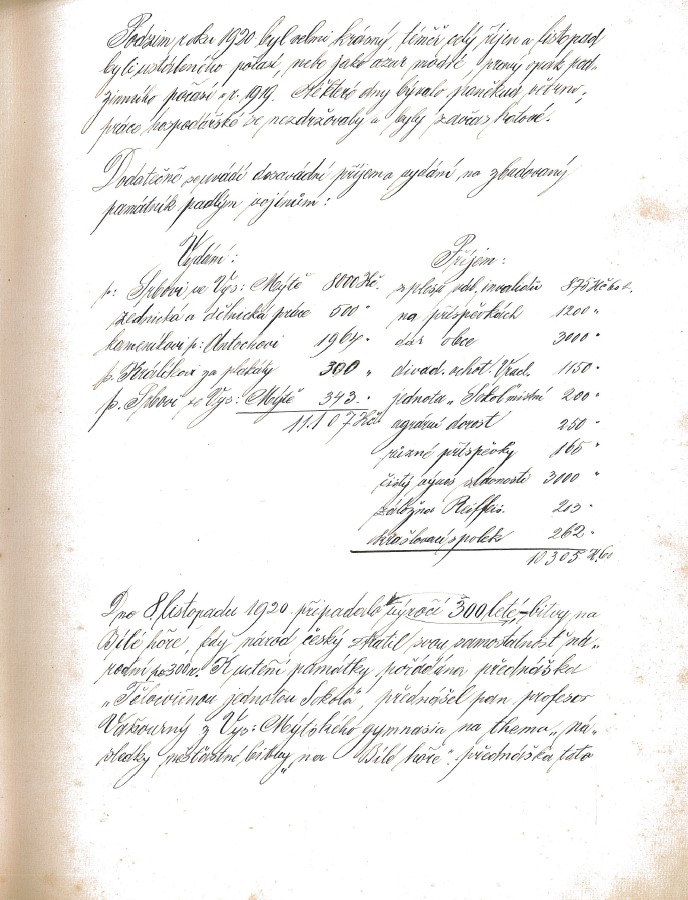 Podzim roku 1920 byl velmi krásný, téměř celý říjen a listopad
byl ustáleného počasí, nebe jako azur modré, pravý opak pod-
zimního počasí v r. 1919. Některé dny bývalo poněkud větrno,
práce hospodářské se nezdržovaly a byly zavčas hotové.
Dodatečně se uvádí dosavadní příjem a vydání na zbudovaný
památník padlým vojínům:
Vydání:
p: Srbovi ve Vys: Mýtě 8000 Kč.
zednická a dělnická práce 500 "
kameníkovi p: Antochovi 1964 "
p. Králíkovi za plakáty 300 "
p. Srbovi ve Vys: Mýtě 343 "
11.107 Kč
Příjem:
z plesu invalidů 875 Kč
na příspěvkách 1200 "
dar obce 3000 "
divad. ochot. Vracl. 1150 "
jednota "Sokol" místní 200 "
agrární dorost 250 "
různé příspěvky 165 "
čistý výnos slavnosti 3000 "
záložna Reiffeis. 203 "
okrašlovací spolek 262 "
10305 K. 60
Dne 8. listopadu 1920 připadalo výročí 300 leté bitvy na
Bílé hoře, kdy národ český ztratil svou samostatnost ná"
rodní po 300 r. K uctění památky pořádána přednáška
"Tělocvičnou jednotou Sokola", přednášel pan profesor
z Vys: Mýtského gymnasia na thema "Ná"
sledky nešťastné bitvy na Bílé hoře". přednáška tato